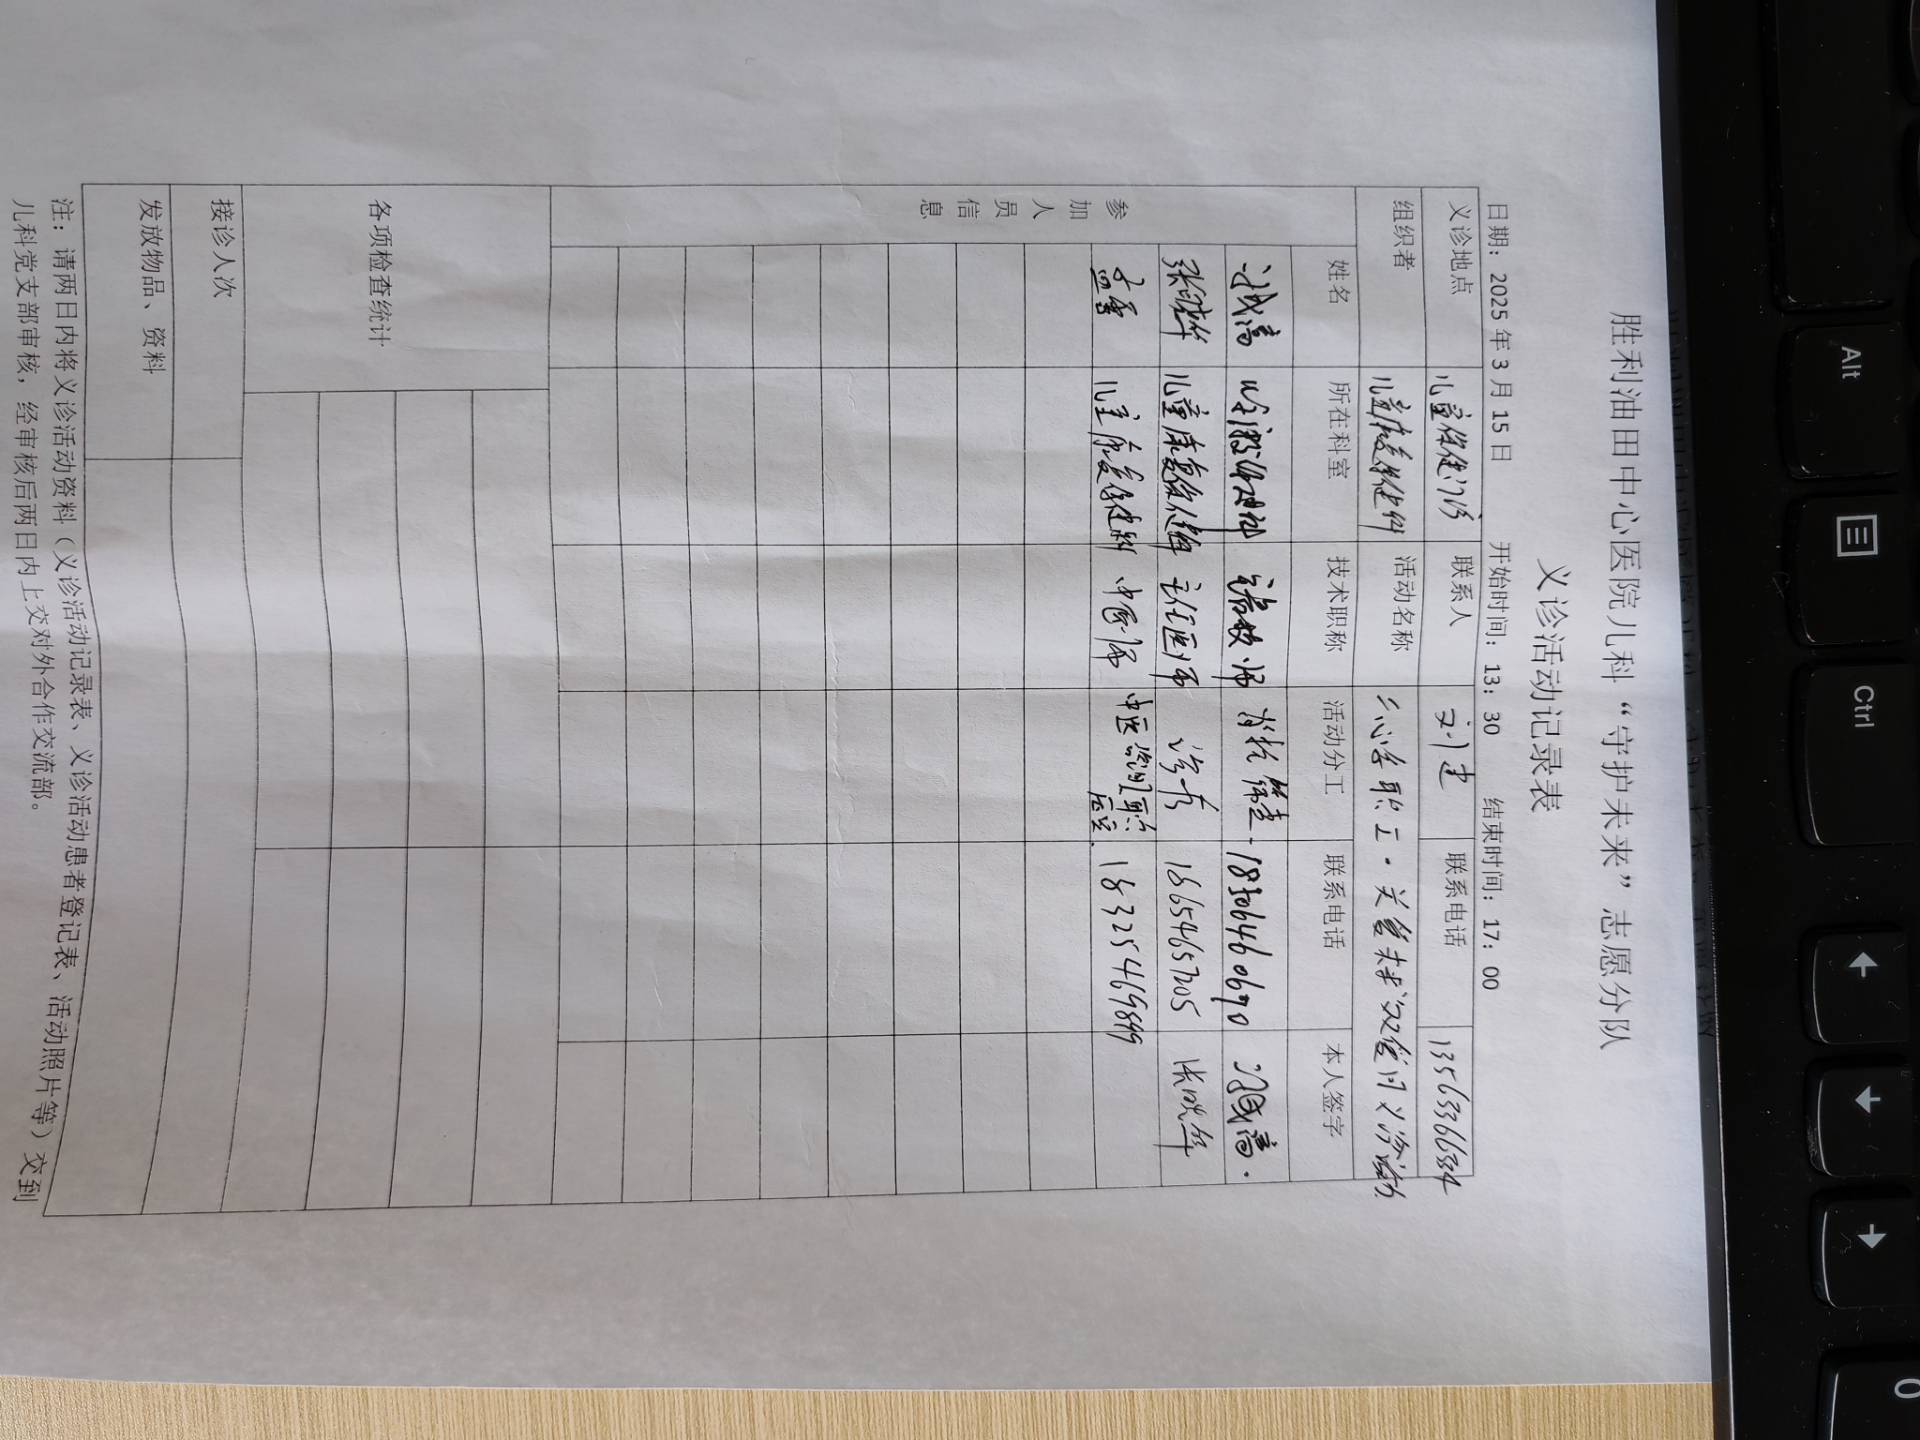 胜利油田中心医院儿科“守护未来”志愿分队
义诊活动记录表
日期：2025年3月15日 开始时间：13：30 结束时间：17：00
义诊地点 儿童保健门诊 联系人 刘建 联系电话
组织者 儿童康复保健科 活动名称 心系职工·关爱未来
参加人员信息
姓名 所在科室 技术职称 活动分工 联系电话 本人签字
主管技师 脊柱筛查 18506460690
张晓华 儿童康复保健科 主任医师 诊疗 18654657205 张晓华
儿童康复保健科 中医师 中医咨询 18325469899
各项检查统计
接诊人次
发放物品、资料
注：请两日内将义诊活动资料（义诊活动记录表、义诊活动患者登记表、活动照片等）交到
儿科党支部审核，经审核后两日内上交对外合作交流部。
Alt
Ctrl
0